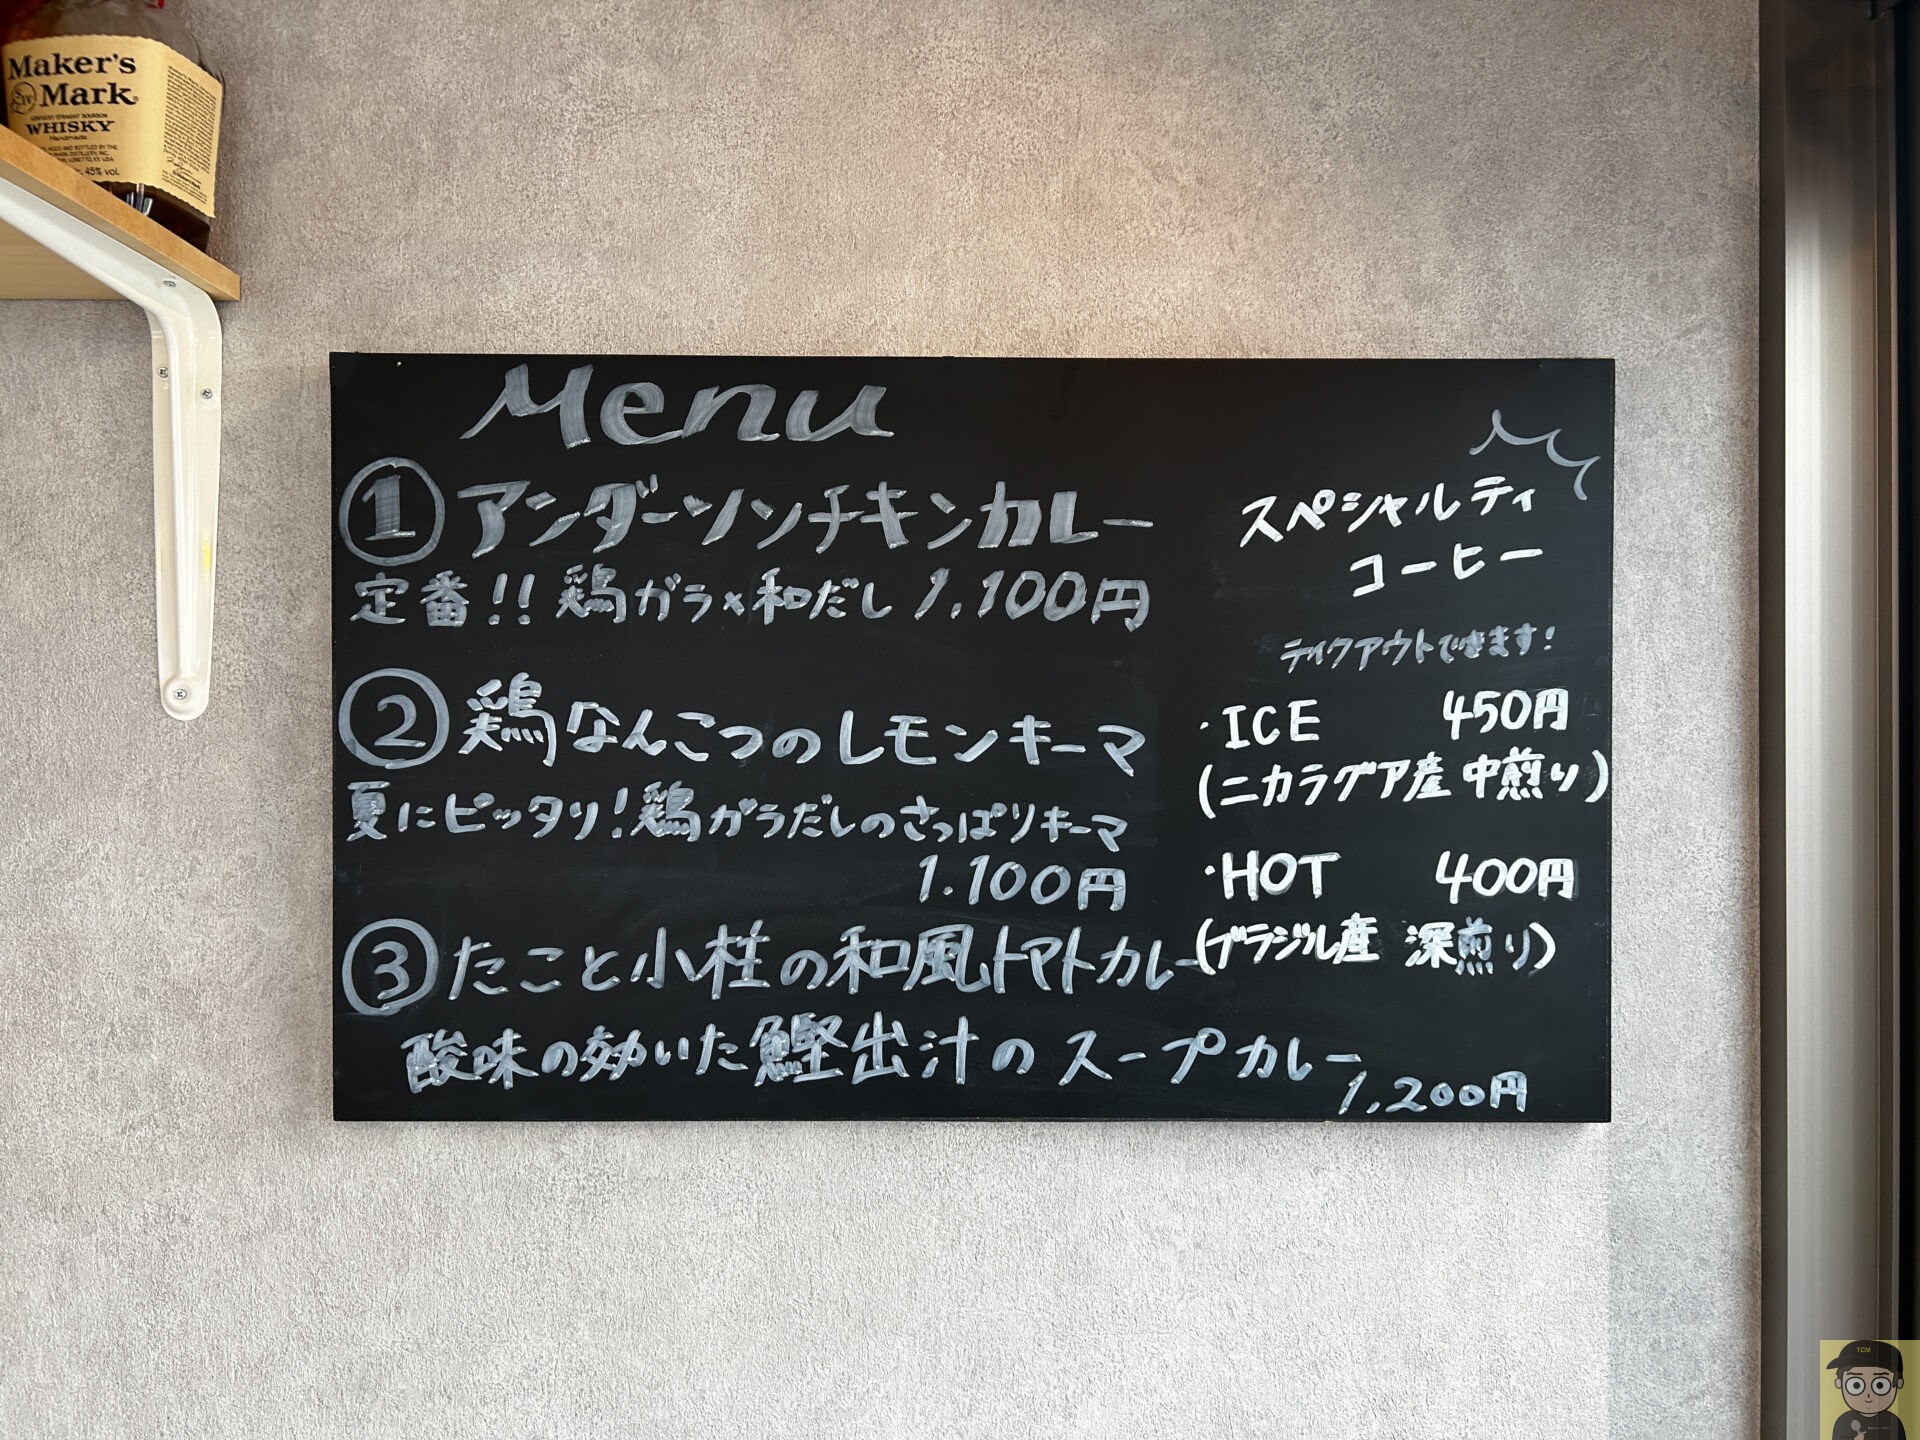 Maker's
Mark
WHISKY
45% vol.
Menu
① アンダーソンチキンカレー
定番!! 鶏ガラ×和だし 1,100円
② 鶏なんこつのレモンキーマ
夏にピッタリ!鶏ガラだしのさっぱりキーマ
1.100円
③ たこと小柱の和風トマトカレー
酸味の効いた鰹出汁のスープカレー
1,200円
スペシャルティ
コーヒー
テイクアウトできます!
・ICE 450円
(ニカラグア産 中煎り)
・HOT 400円
(ブラジル産 深煎り)
TCM